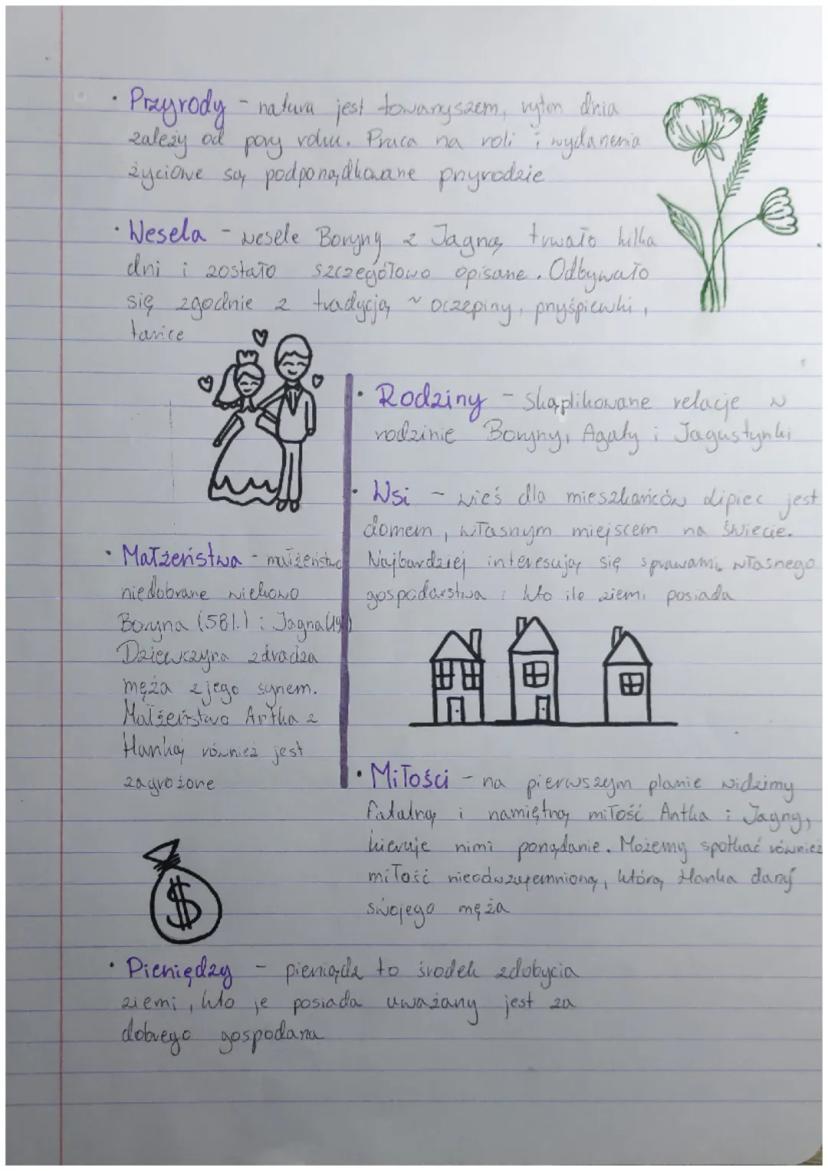 · Przyrody - natura jest towarzyszem, rytm dnia
zależy od pory roku. Praca na roli i wydarzenia
życiowe są podporządkowane przyrodzie
· Wesela - wesele Boryny z Jagną trwało kilka
dni i zostało szczegółowo opisane. Odbywało
się zgodnie z tradycją ~ oczepiny, przyśpiewki,
tańce
· Rodziny - skąplikowane relacje w
rodzinie Boryny, Agaty i Jagustynki
· Wsi - wieś dla mieszkańców Lipiec jest
domem, własnym miejscem na świecie.
Najbardziej interesują się sprawami własnego
gospodarstwa i kto ile ziemi posiada
· Małżeństwa - małżeństwo
niedobrane wiekowo
Boryna (58l.) i Jagna (19l)
Dziewczyna zdradza
męża z jego synem.
Małżeństwo Antka z
Hanką również jest
zagrożone
· Miłości - na pierwszym planie widzimy
fatalną i namiętną miłość Antka i Jagny,
kieruje nimi porządanie. Możemy spotkać również
miłość nieodwzajemnioną, którą Hanka darzy
swojego męża
$
· Pieniędzy - pieniądz to środek zdobycia
ziemi, kto je posiada uważany jest za
dobrego gospodarza